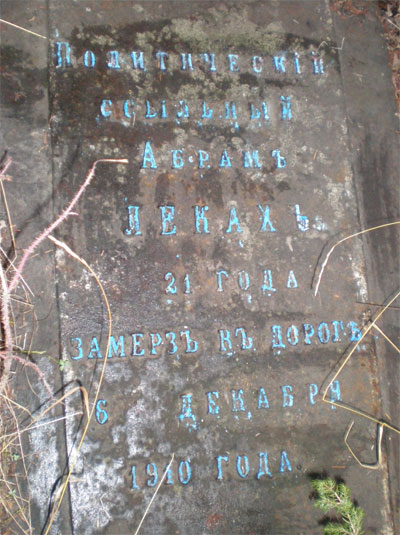 Политическій
ссыльный
Абрамъ
Лекахъ
21 года
замерзъ къ дорогѣ
6 декабря
1910 года.